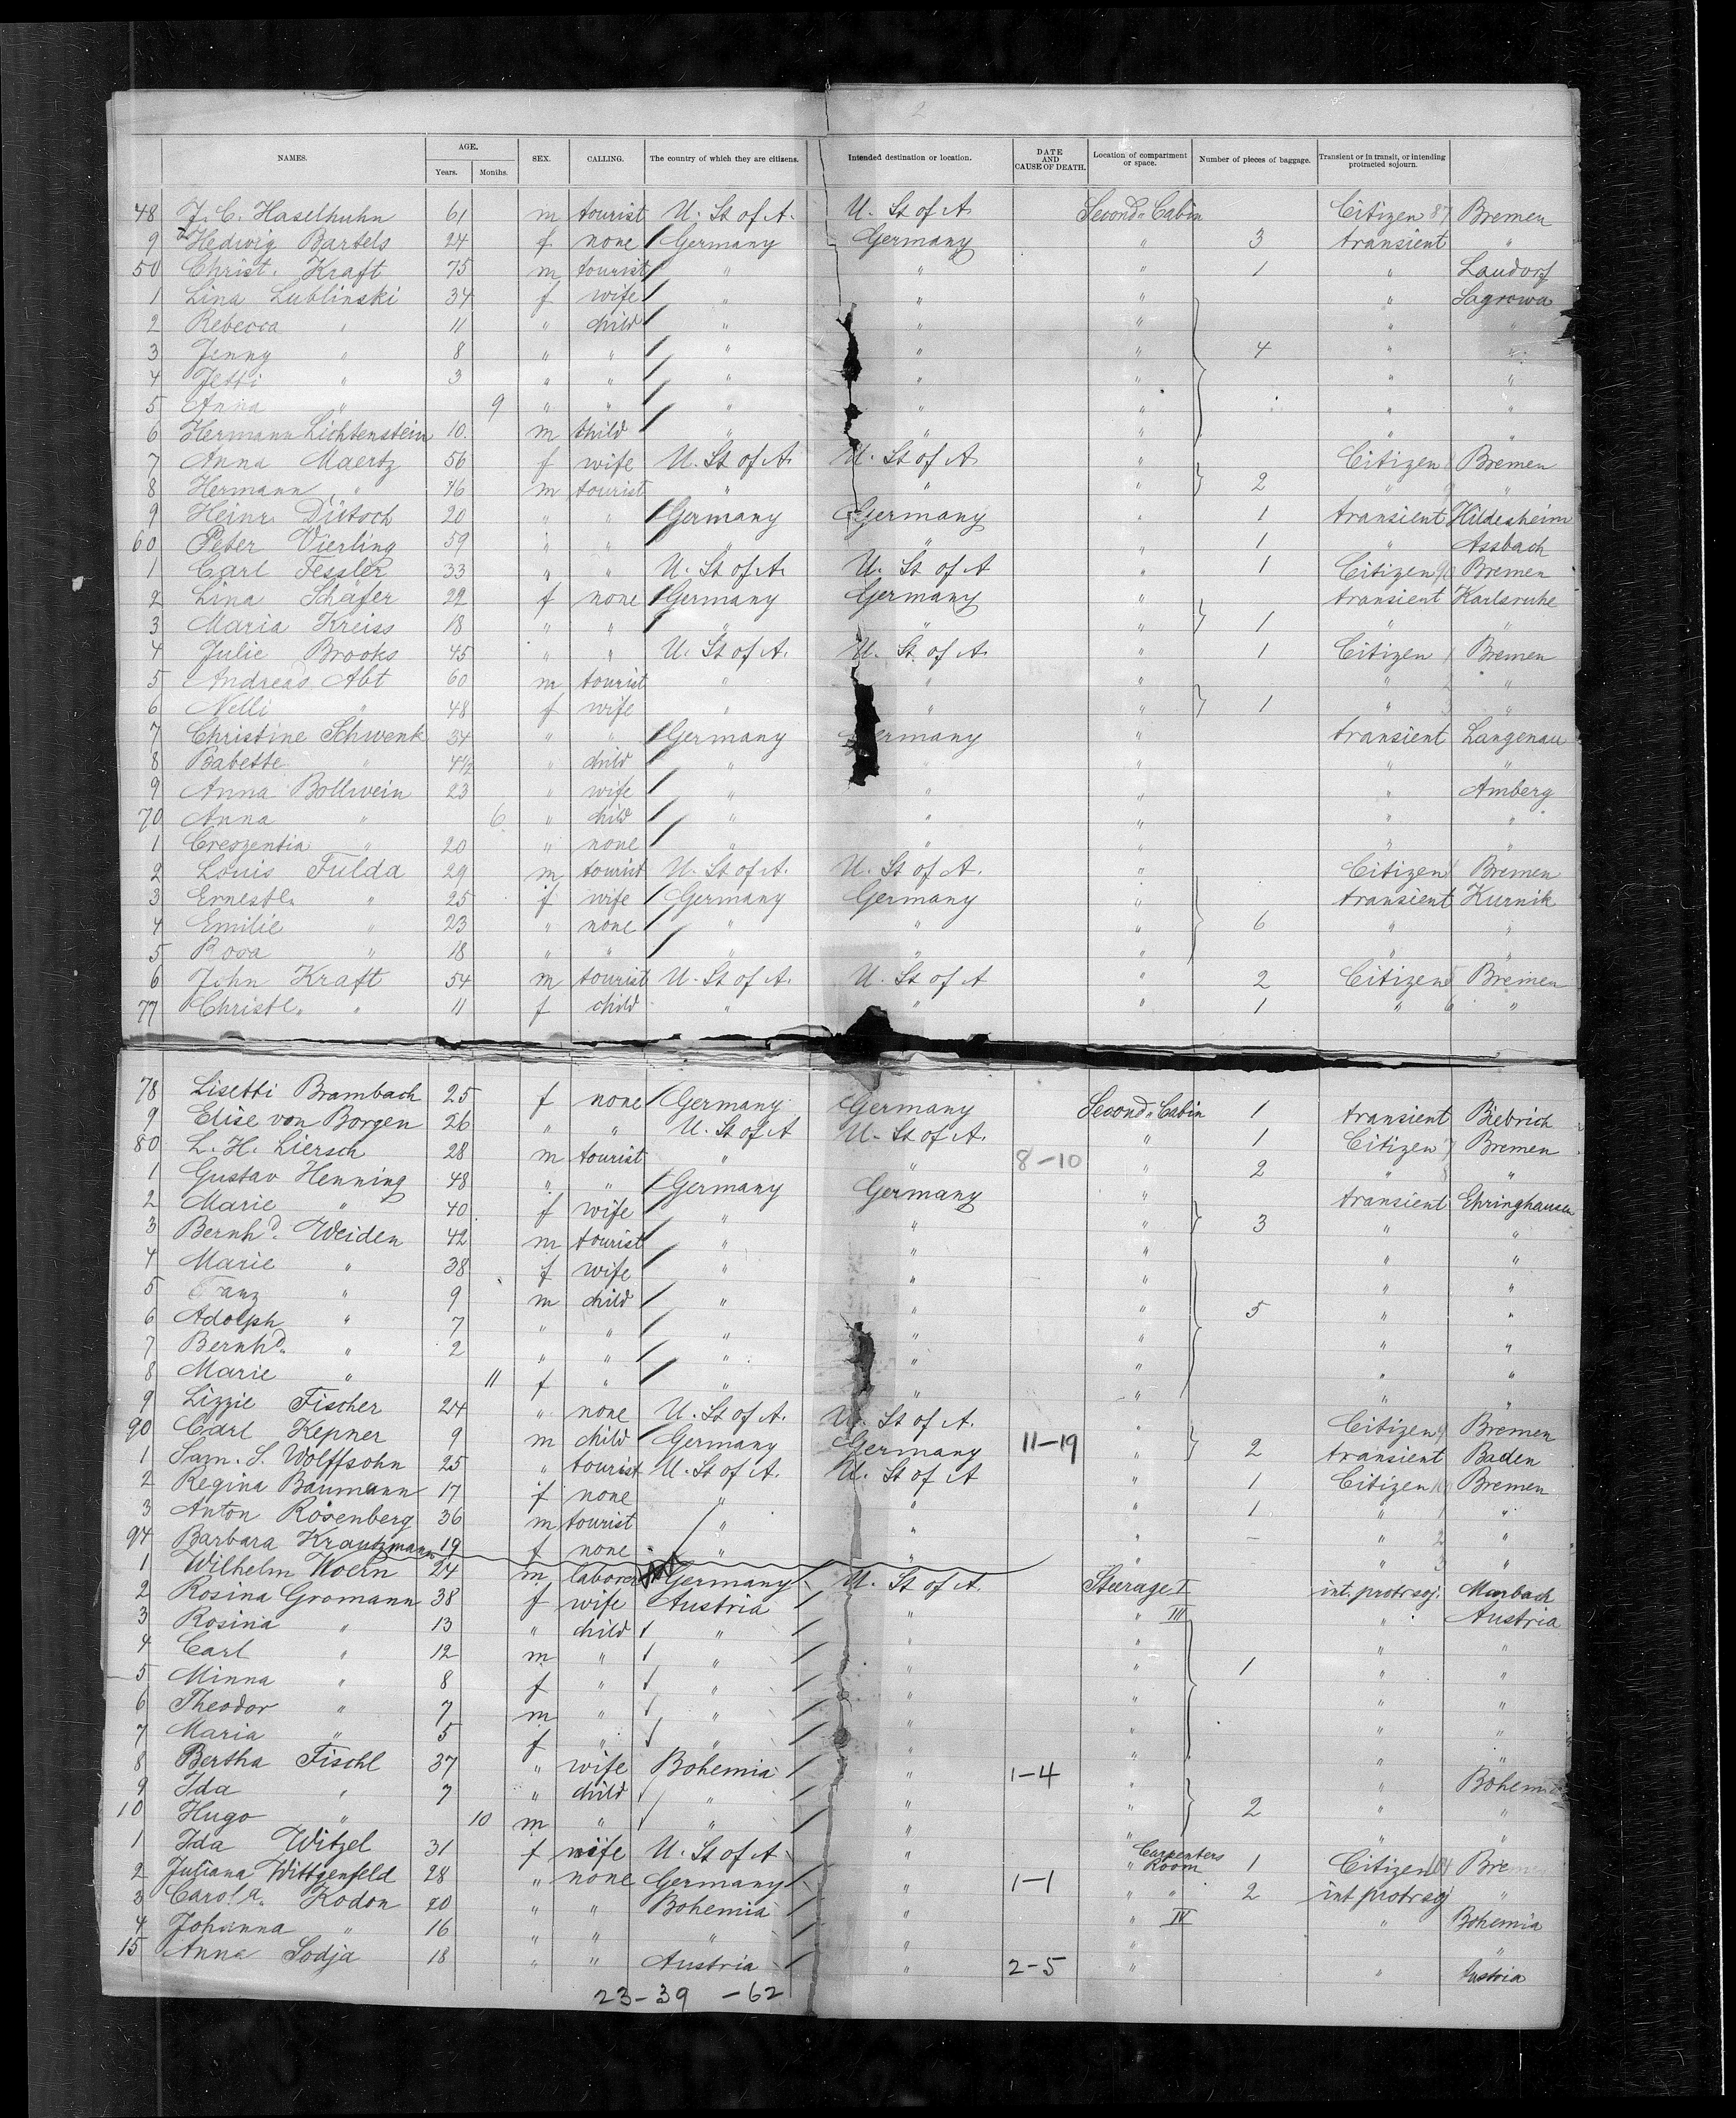 2
NAMES. AGE. Years. Months. SEX. CALLING. The country of which they are citizens. Intended destination or location. DATE AND CAUSE OF DEATH. Location of compartment or space. Number of pieces of baggage. Transient or in transit, or intending protracted sojourn.
48 J. C. Haselhuhn 61 m tourist U. St of A. U. St of A. Second Cabin Citizen 87 Bremen
9 Hedwig Bartels 24 f none Germany Germany " 3 transient "
50 Christ. Kraft 75 m tourist " " " 1 " Laudorf
1 Lina Lublinski 34 f wife " " " " Sagrowa
2 Rebecca " 11 " child " " " " "
3 Jenny " 8 " " " " " 4 " "
4 Jetti " 3 " " " " " " "
5 Anna " 9 " " " " " " "
6 Hermann Lichtenstein 10 m child " " " " "
7 Anna Maertz 56 f wife U. St of A. U. St of A " Citizen Bremen
8 Hermann " 46 m tourist " " " 2 " "
9 Heinr. Dütsch 20 " " Germany Germany " 1 transient Hildesheim
60 Peter Vierling 59 " " " " " 1 " Assbach
1 Carl Fessler 33 " " U. St of A. U. St of A " 1 Citizen 90 Bremen
2 Lina Schäfer 22 f none Germany Germany " transient Karlsruhe
3 Maria Kreiss 18 " " " " " 1 " "
4 Julie Brooks 45 " " U. St of A. U. St of A. " 1 Citizen 1 Bremen
5 Andreas Abt 60 m tourist " " " " 2 "
6 Nelli " 48 f wife " " " 1 " 3 "
7 Christine Schwenk 34 " " Germany Germany " transient Langenau
8 Babette " 4½ " child " " " " "
9 Anna Bollwein 23 " wife " " " " Amberg
70 Anna " 6 " child " " " " "
1 Creszentia " 20 " none " " " " "
2 Louis Fulda 29 m tourist U. St of A. U. St of A. " Citizen Bremen
3 Ernestle. " 25 f wife Germany Germany " transient Kurnik
4 Emilie " 23 " none " " " 6 " "
5 Rosa " 18 " " " " " " "
6 John Kraft 54 m tourist U. St of A. U. St of A " 2 Citizen Bremen
77 Christl. " 11 f child " " " 1 " 6 "
78 Lisetti Brambach 25 f none Germany Germany Second Cabin 1 transient Biebrich
9 Elise von Borgen 26 " " U. St of A U. St of A. " 1 Citizen 7 Bremen
80 L. H. Liersch 28 m tourist " " 8-10 " 2 " 8 "
1 Gustav Henning 48 " " Germany Germany " transient Ehringhausen
2 Marie " 40 f wife " " " 3 " "
3 Bernhd. Weiden 42 m tourist " " " " "
4 Marie " 38 f wife " " " " "
5 Franz " 9 m child " " " 5 " "
6 Adolph " 7 " " " " " " "
7 Bernhd. " 2 " " " " " " "
8 Marie " 11 f " " " " " "
9 Lizzie Fischer 24 " none U. St of A. U. St of A. " Citizen 9 Bremen
90 Carl Kepner 9 m child Germany Germany 11-19 " 2 transient Baden
1 Sam. S. Wolffsohn 25 " tourist U. St of A. U. St of A " 1 Citizen Bremen
2 Regina Baumann 17 f none " " " 1 " 1 "
3 Anton Rosenberg 36 m tourist " " " - " 2 "
94 Barbara Krautzmann 19 f none " " " 3 "
1 Wilhelm Woern 24 m laborer Germany U. St of A. Steerage I int. protr. soj. Marbach
2 Rosina Gromann 38 f wife Austria " " III " Austria
3 Rosina " 13 " child " " " " "
4 Carl " 12 m " " " " 1 " "
5 Minna " 8 f " " " " " "
6 Theodor " 7 m " " " " " "
7 Maria " 5 f " " " " " "
8 Bertha Fischl 37 " wife Bohemia " 1-4 " " Bohemia
9 Ida " 7 " child " " " 2 " "
10 Hugo " 10 m " " " " " "
1 Ida Witzel 31 f wife U. St of A " " Carpenters Room 1 Citizen 104 Bremen
2 Juliana Wittgenfeld 28 " none Germany " 1-1 " " 2 int protr soj "
3 Carola. Kodon 20 " " Bohemia " " IV " Bohemia
4 Johanna " 16 " " " " " "
15 Anna Sodja 18 " " Austria " 2-5 " " Austria
23-39 -62